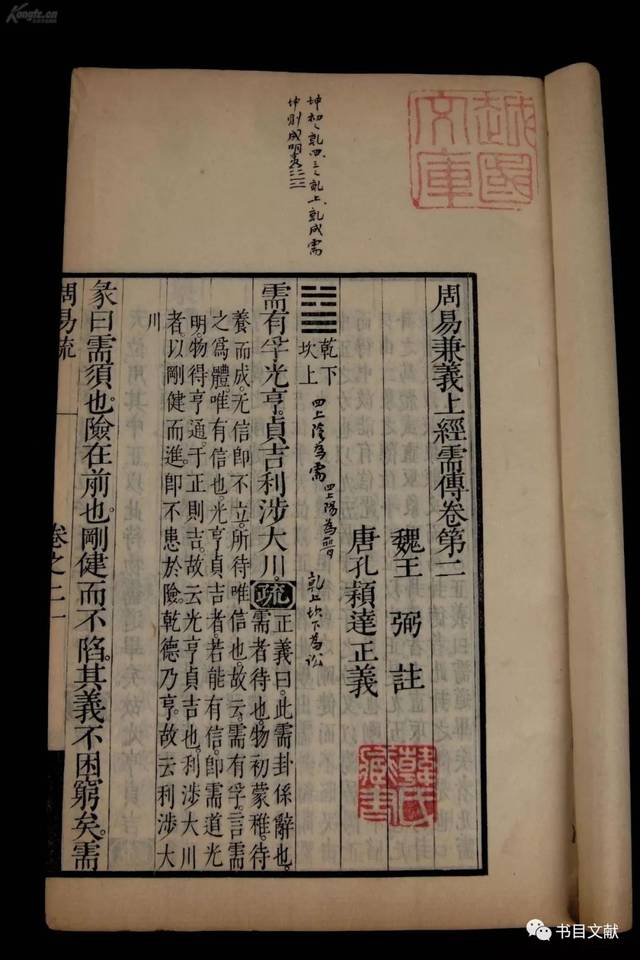 Kongfz.cn
越國文庫
坤初之乾四、三之乾上、乾成需
坤則成明夷
周易兼義上經需傳卷第二
魏王 弼 註
唐孔穎達正義
韓氏藏書
䷄ 乾下坎上
四上陰為需
四上陽為
乾上坎下為訟
需有孚光亨貞吉利涉大川。疏 正義曰。此需卦係辭也。
需者待也。物初蒙稚。待
養而成。无信卽不立。所待唯信也。故云。需有孚。言需
之爲體。唯有信也。光亨貞吉者。若能有信。卽需道光
明。物得亨通。于正則吉。故云光亨貞吉也。利涉大川
者。以剛健而進。卽不患於險。乾德乃亨。故云利涉大
川
彖曰。需須也。險在前也。剛健而不陷。其義不困窮矣。需
周易疏 卷之二 一
书目文献